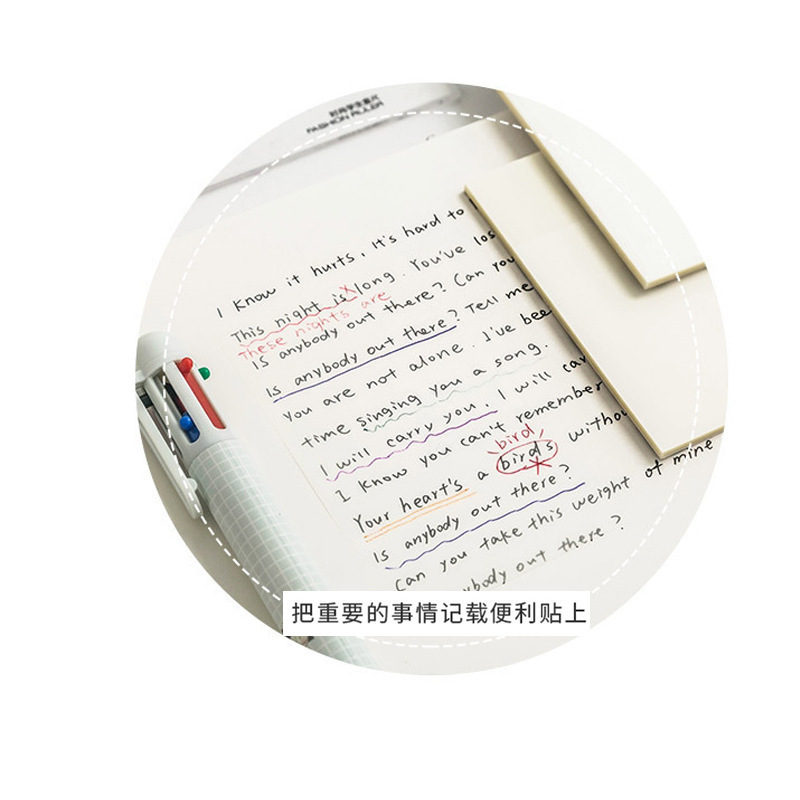 时尚学生直尺
FASHION RULER
I Know it hurts, it's hard to
This night is long. You've los
These nights are
Is anybody out there? Can you
Is anybody out there? Tell me
You are not alone. I've bee
time singing you a song.
I will carry you. I will car
I Know you can't remember
bird
Your heart's a birds withou
Is anybody out there? of mine
Can you take this weight
ybody out there?
把重要的事情记载便利贴上